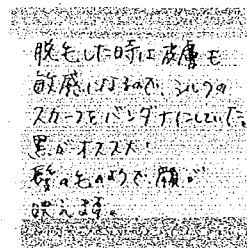 脱毛した時は皮膚も
敏感になるので、シルクの
スカーフをバンダナにしていた。
黒がオススメ!
髪の毛のようで顔が
映えます。